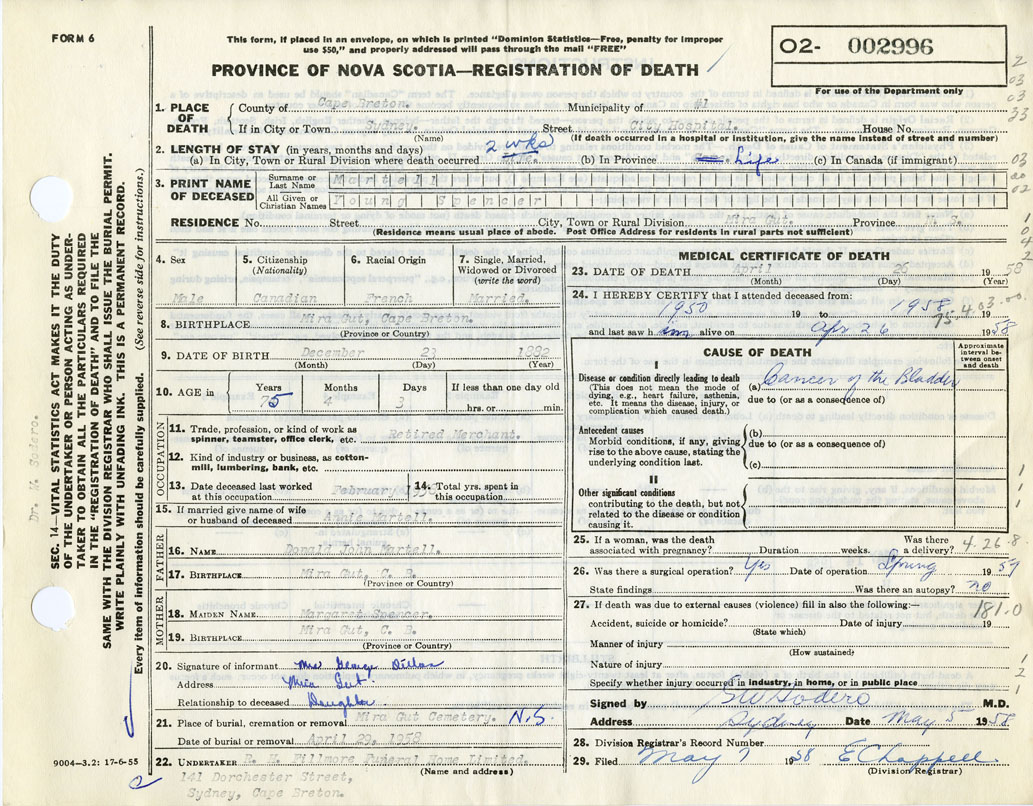 FORM 6
This form, if placed in an envelope, on which is printed "Dominion Statistics—Free, penalty for improper
use $50," and properly addressed will pass through the mail "FREE"
PROVINCE OF NOVA SCOTIA—REGISTRATION OF DEATH
O2- 002996
For use of the Department only
1. PLACE OF DEATH
County of Cape Breton. Municipality of #1
If in City or Town Sydney. Street City Hospital. House No.
(Name) (If death occurred in a hospital or institution, give the name instead of street and number)
2. LENGTH OF STAY (in years, months and days)
(a) In City, Town or Rural Division where death occurred 2 wks (b) In Province Life (c) In Canada (if immigrant)
3. PRINT NAME OF DECEASED
Surname or Last Name Martell
All Given or Christian Names Young Spencer
RESIDENCE No. Street City, Town or Rural Division Mira Gut. Province N. S.
(Residence means usual place of abode. Post Office Address for residents in rural parts not sufficient)
4. Sex
Male
5. Citizenship
(Nationality)
Canadian
6. Racial Origin
French
7. Single, Married,
Widowed or Divorced
(write the word)
Married.
8. BIRTHPLACE Mira Gut, Cape Breton.
(Province or Country)
9. DATE OF BIRTH December 23 1882
(Month) (Day) (Year)
10. AGE in
Years Months Days If less than one day old
75 4 3 hrs. or min.
OCCUPATION
11. Trade, profession, or kind of work as
spinner, teamster, office clerk, etc. Retired Merchant.
12. Kind of industry or business, as cotton-
mill, lumbering, bank, etc.
13. Date deceased last worked
at this occupation February
14. Total yrs. spent in
this occupation
15. If married give name of wife
or husband of deceased Annie Martell.
FATHER
16. NAME Donald John Martell.
17. BIRTHPLACE Mira Gut, C. B.
(Province or Country)
MOTHER
18. MAIDEN NAME Margaret Spencer.
19. BIRTHPLACE Mira Gut, C. B.
(Province or Country)
20. Signature of informant Mrs George Dillon
Address Mira Gut.
Relationship to deceased Daughter
21. Place of burial, cremation or removal Mira Gut Cemetery. N.S.
Date of burial or removal April 29, 1958
22. UNDERTAKER R. H. Fillmore Funeral Home Limited.
(Name and address)
141 Dorchester Street,
Sydney, Cape Breton.
9004—3.2: 17-6-55
MEDICAL CERTIFICATE OF DEATH
23. DATE OF DEATH April 26 1958
(Month) (Day) (Year)
24. I HEREBY CERTIFY that I attended deceased from:
1950 19 to 1958 19
75 4.03.00.
and last saw him alive on Apr 26 1958
CAUSE OF DEATH
Approximate interval between onset and death
I
Disease or condition directly leading to death
(This does not mean the mode of
dying, e.g., heart failure, asthenia,
etc. It means the disease, injury, or
complication which caused death.)
(a) Cancer of the Bladder
due to (or as a consequence of)
Antecedent causes
Morbid conditions, if any, giving
rise to the above cause, stating the
underlying condition last.
(b)
due to (or as a consequence of)
(c)
II
Other significant conditions
contributing to the death, but not
related to the disease or condition
causing it.
25. If a woman, was the death
associated with pregnancy? Duration weeks. Was there
a delivery?
4.26.8.
26. Was there a surgical operation? Yes Date of operation Spring 1957
State findings Was there an autopsy? no
27. If death was due to external causes (violence) fill in also the following:—
181.0
Accident, suicide or homicide? Date of injury 19
(State which)
Manner of injury
(How sustained)
Nature of injury
Specify whether injury occurred in industry, in home, or in public place
Signed by SW Sodero M.D.
Address Sydney Date May 5 1958
28. Division Registrar's Record Number
29. Filed May 7 1958 E Chappell
(Division Registrar)
SEC. 14—VITAL STATISTICS ACT MAKES IT THE DUTY
OF THE UNDERTAKER OR PERSON ACTING AS UNDER-
TAKER TO OBTAIN ALL THE PARTICULARS REQUIRED
IN THE "REGISTRATION OF DEATH" AND TO FILE THE
SAME WITH THE DIVISION REGISTRAR WHO SHALL ISSUE THE BURIAL PERMIT.
WRITE PLAINLY WITH UNFADING INK. THIS IS A PERMANENT RECORD.
Every item of information should be carefully supplied. (See reverse side for instructions.)